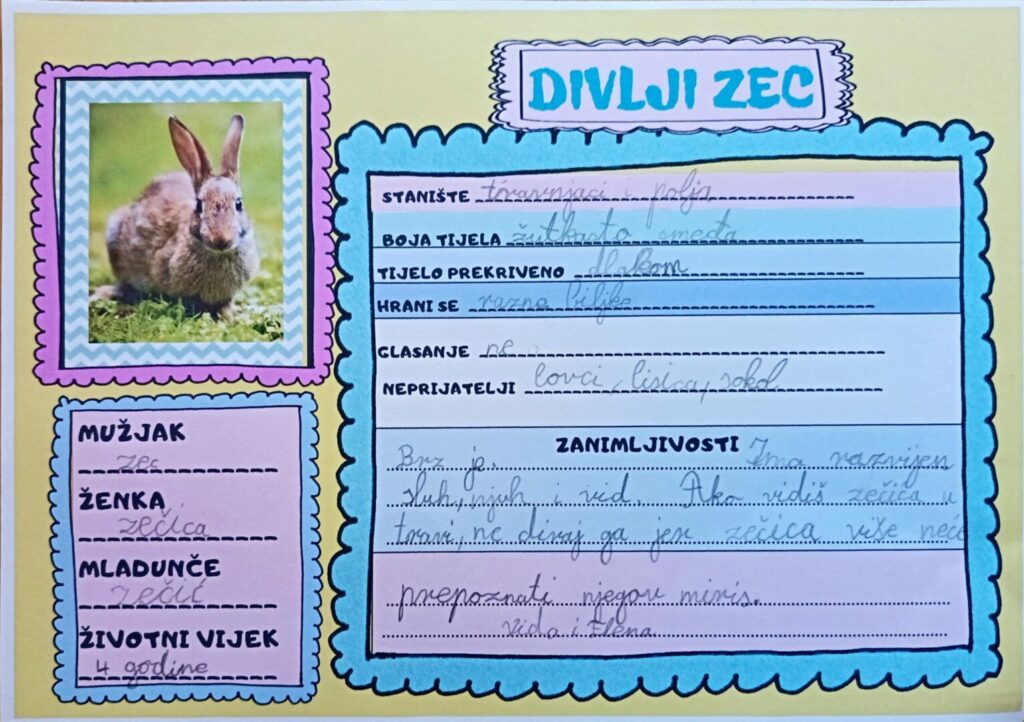 DIVLJI ZEC
STANIŠTE travnjaci i polja
BOJA TIJELA žutkasto smeđa
TIJELO PREKRIVENO dlakom
HRANI SE razne biljke
GLASANJE ne
NEPRIJATELJI lovci, lisica, sokol
ZANIMLJIVOSTI
Brz je. Ima razvijen
sluh, njuh i vid. Ako vidiš zečića u
travi, ne diraj ga jer zečica više neće
prepoznati njegov miris.
Vida i Elena
MUŽJAK
zec
ŽENKA
zečica
MLADUNČE
zečić
ŽIVOTNI VIJEK
4 godine